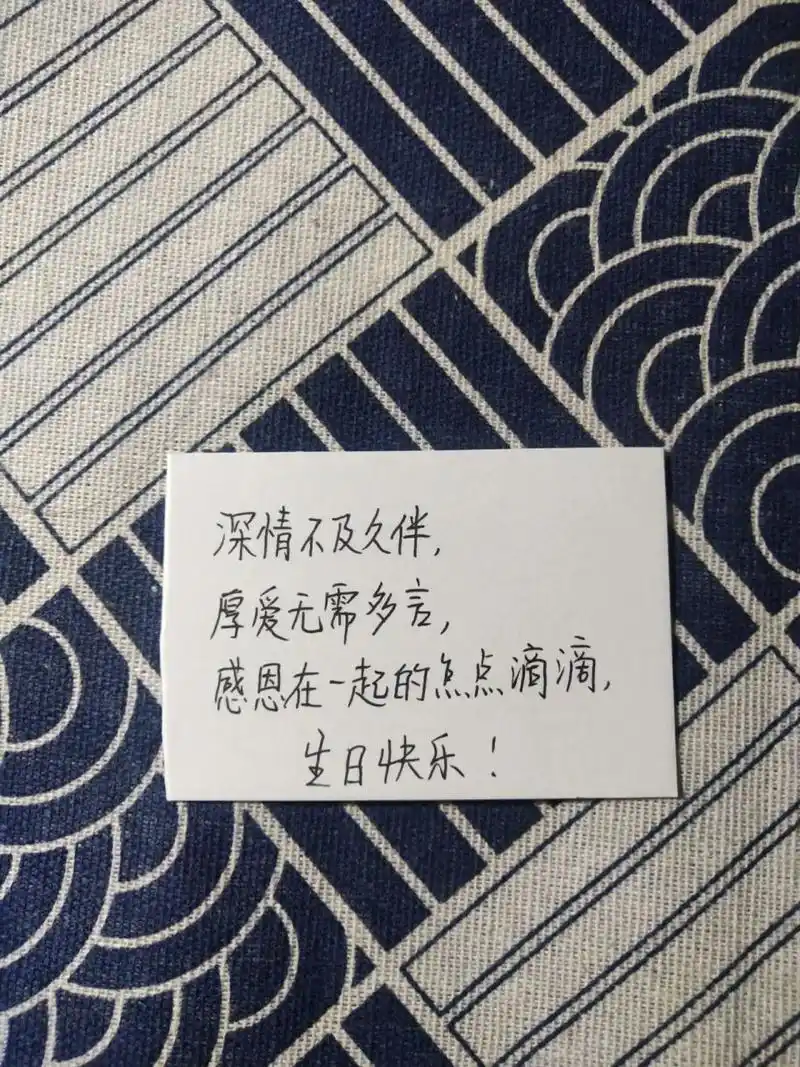 深情不及久伴，
厚爱无需多言，
感恩在一起的点点滴滴，
生日快乐！